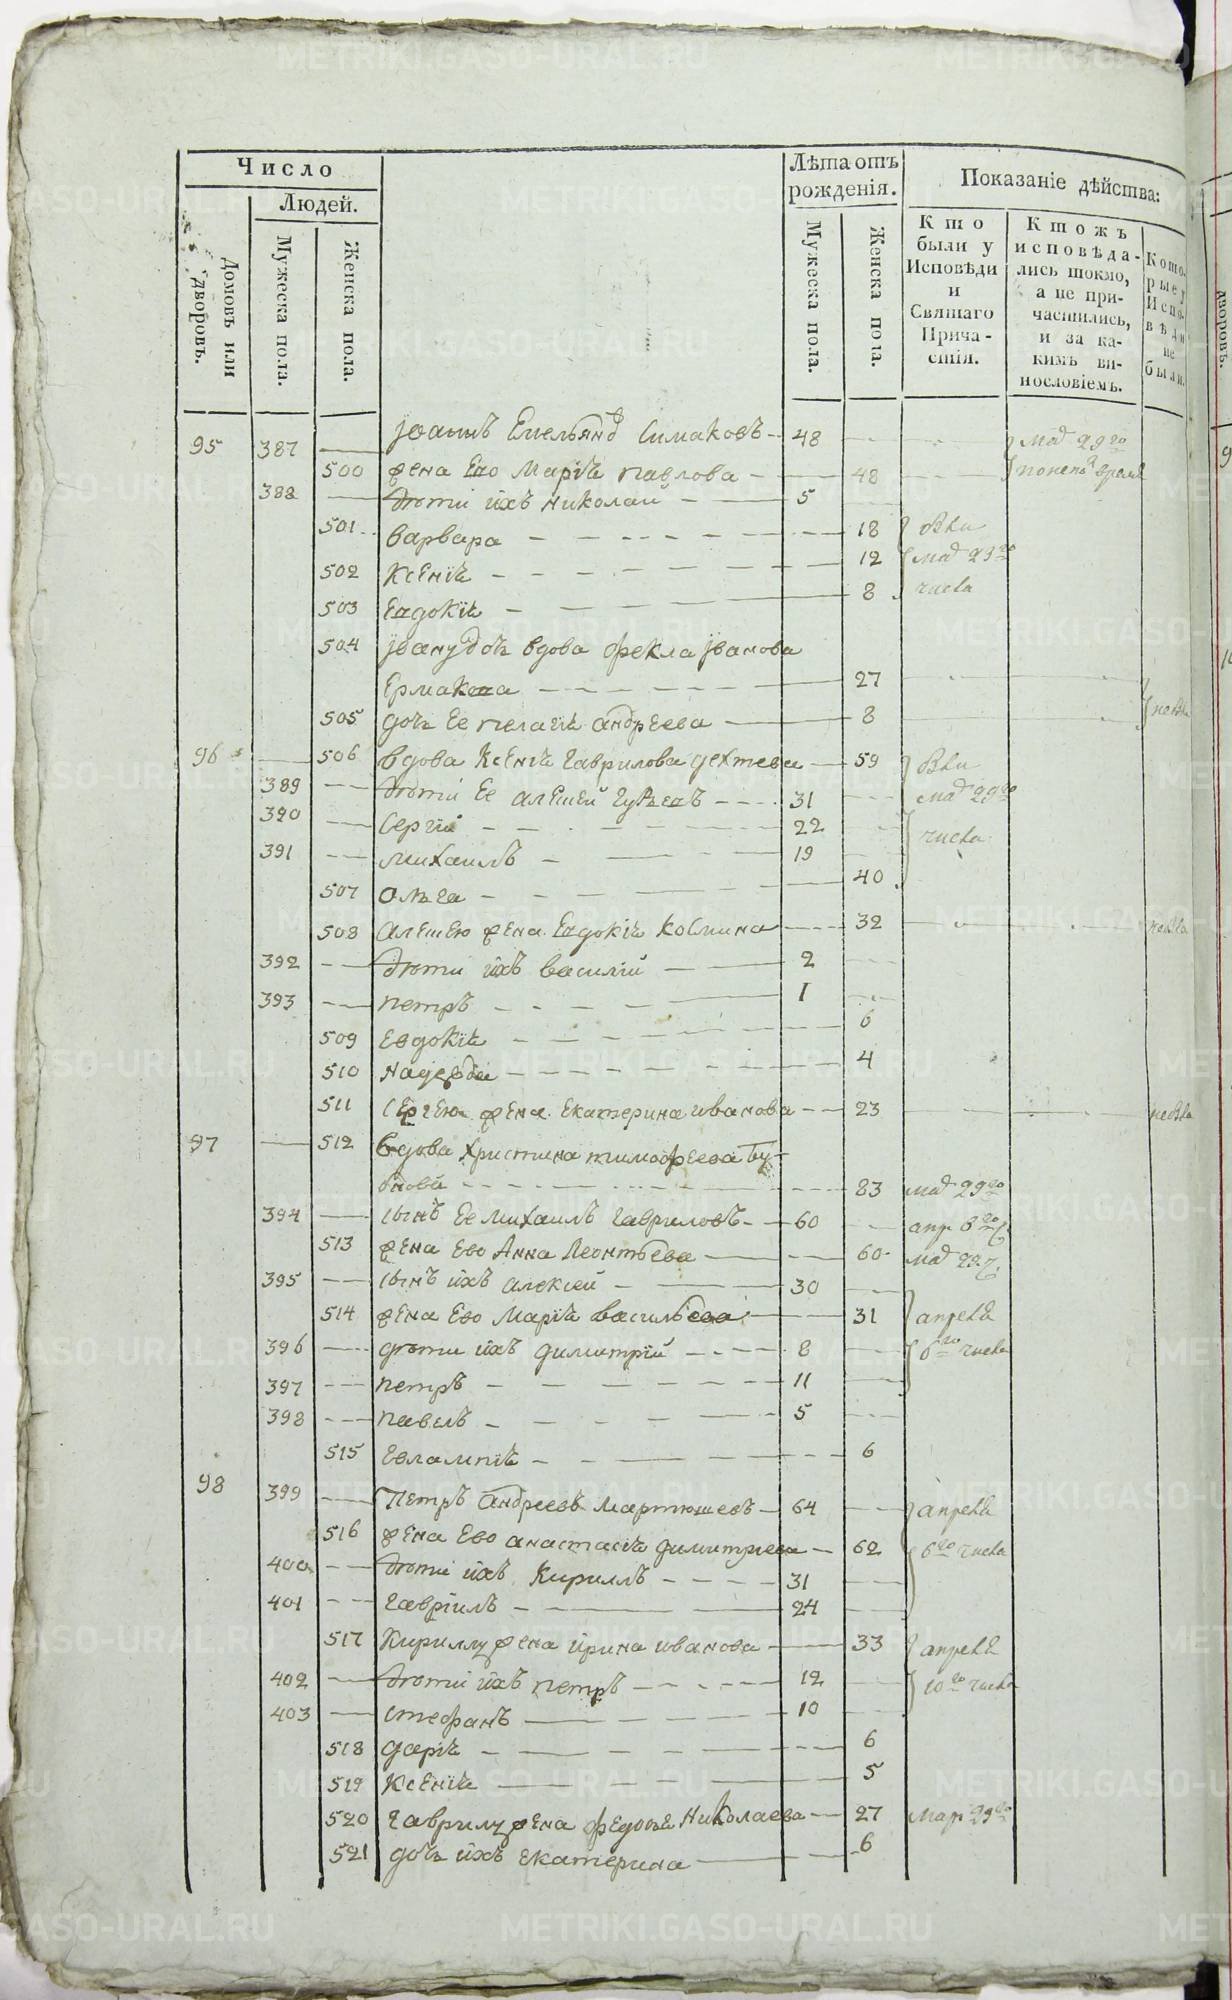 Число
Людей.
Домовъ или дворовъ.
Мужеска пола.
Женска пола.
Лѣта отъ рожденія.
Мужеска пола.
Женска пола.
Показаніе дѣйства:
Кто были у Исповѣди и Святаго Причастія.
Ктожъ исповѣдались токмо, а не причастились, и за какимъ винословіемъ.
Которые у Исповѣди не были.
95 387 Іоаннъ Емельяновъ Симаковъ 48 29го
500 жена Ево Марія павлова 48
388 дѣти ихъ николай 5
501 варвара 18 Вси
502 Ксенія 12 29го
503 Евдокія 8 числа
504 вдова фекла Іванова
Ермакова 27
505 дочь Ее пелагія андреева 8
96 506 вдова Ксенія гаврилова дехтева 59 Вси
389 дѣти Ее алеѯей 31 29го
390 Сергій 22 числа
391 михаилъ 19
507 Ольга 40
508 жена Евдокія Космина 32
392 дѣти ихъ василій 2
393 петръ 1
509 Евдокія 6
510 надежда 4
511 Сергею жена Екатерина иванова 23
97 512 Вдова христина тимофеева Бу-
бнова 83 29го
394 сынъ Ее михаилъ гавриловъ 60 апр 6го
513 жена Ево Анна Леонтьева 60 29
395 сынъ ихъ алексей 30
514 жена Ево Марія васильева 31 апреля
396 дѣти ихъ димитрій 8 6го числа
397 петръ 11
398 павелъ 5
515 Евлампія 6
98 399 Петръ андреевъ мартюшевъ 64 апреля
516 жена Ево анастасія димитриева 62 6го числа
400 дѣти ихъ Кириллъ 31
401 гавріилъ 24
517 Кириллу жена ірина иванова 33 апреля
402 дѣти ихъ петръ 12 10го числа
403 стефанъ 10
518 дарія 6
519 Ксенія 5
520 гаврилу жена федосья Николаева 27 мар 29го
521 дочь ихъ екатерина 6
METRIKI.GASO-URAL.RU